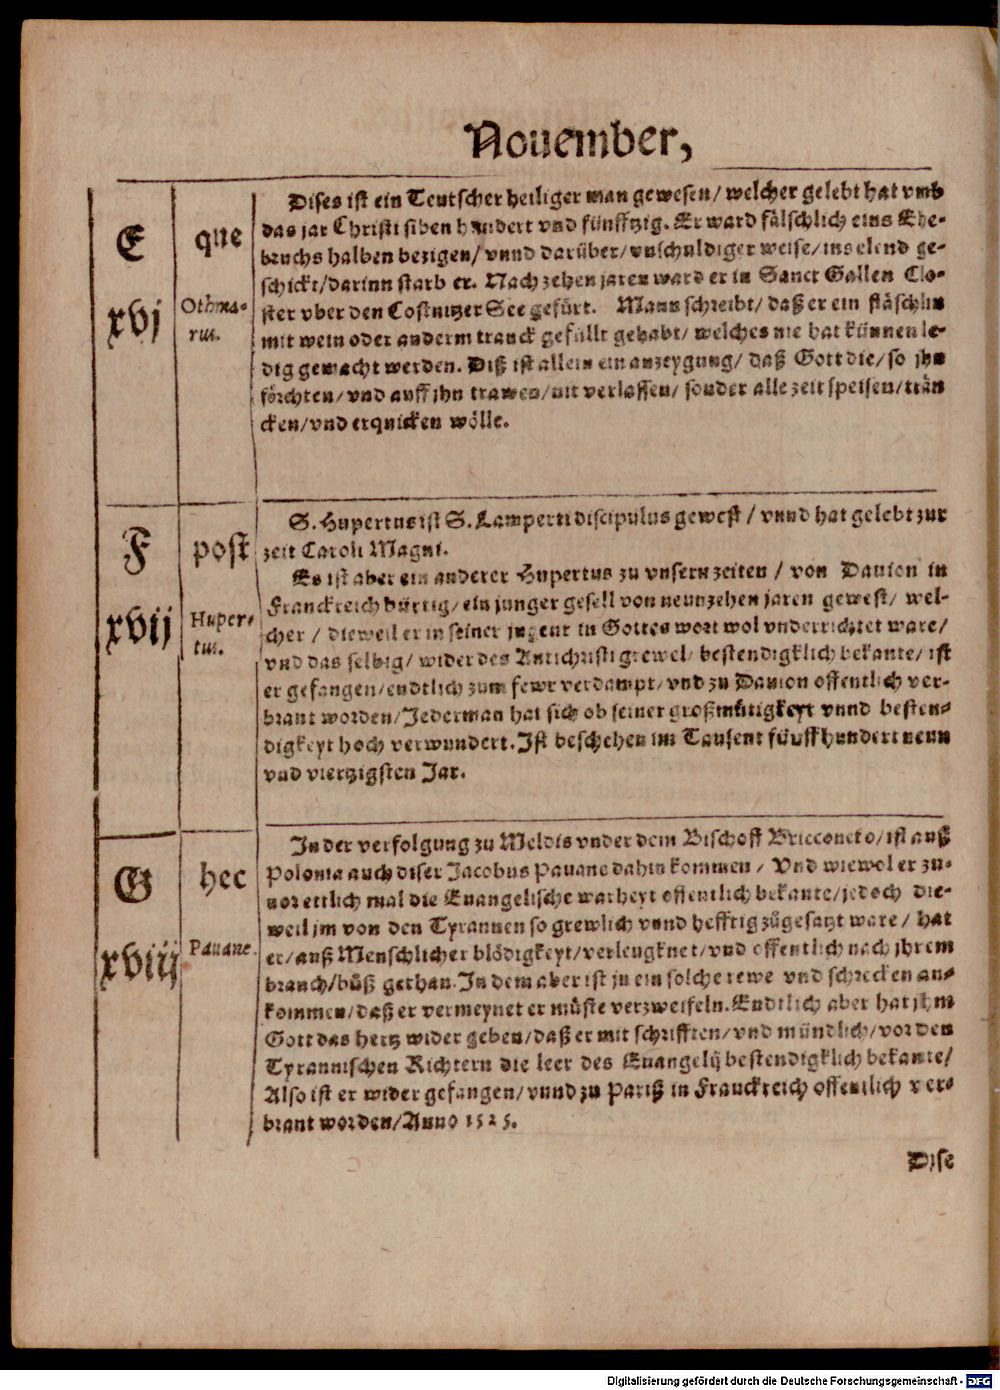 Nouember,
E
xvj
que
Othma-
rus.
Dises ist ein Teutscher heiliger man gewesen/ welcher gelebt hat vmb
das jar Christi siben hundert vnd fünfftzig. Er ward fälschlich eins Ehe-
bruchs halben bezigen/ vnnd darüber/ vnschuldiger weise/ ins elend ge-
schickt/ darinn starb er. Nach zehen jaren ward er in Sanct Gallen Clo-
ster vber den Costnitzer See gefürt. Mann schreibt/ daß er ein fläschlin
mit wein oder anderm tranck gefüllt gehabt/ welches nie hat künnen le-
dig gemacht werden. Diß ist allein ein anzeygung/ daß Gott die/ so jhn
förchten/ vnd auff jhn trawen/ nit verlassen/ sonder alle zeit speisen/ trän
cken/ vnd erquicken wölle.
F
xvij
post
Huper-
tus.
S. Hupertus ist S. Lamperti discipulus gewest / vnnd hat gelebt zur
zeit Caroli Magni.
Es ist aber ein anderer Hupertus zu vnsern zeiten / von Dauion in
Franckreich bürtig/ ein junger gesell von neunzehen jaren gewest/ wel-
cher / dieweil er in seiner jugent in Gottes wort wol vnderrichtet ware/
vnd das selbig/ wider des Antichristi grewel/ bestendigklich bekante/ ist
er gefangen/ endtlich zum fewr verdampt/ vnd zu Dauion offentlich ver-
brant worden/ Jederman hat sich ob seiner großmütigkeyt vnnd besten-
digkeyt hoch verwundert. Ist beschehen im Tausent fünff hundert neun
vnd viertzigsten Jar.
G
xviij
hec
Pauane.
In der verfolgung zu Meldis vnder dem Bischoff Bricconeto/ ist auß
Polonia auch diser Jacobus Pauane dahin kommen / Vnd wiewol er zu-
uor ettlich mal die Euangelische warheyt offentlich bekante/ jedoch die-
weil jm von den Tyrannen so grewlich vnnd hefftig zůgesatzt ware / hat
er/ auß Menschlicher blödigkeyt/ verleugknet/ vnd offentlich nach jhrem
brauch/ bůß gethan. In dem aber ist jn ein solche rewe vnd schrecken an-
kommen/ daß er vermeynet er müste verzweifeln. Endtlich aber hat jhm
Gott das hertz wider geben/ daß er mit schrifften/ vnd mündlich/ vor den
Tyrannischen Richtern die leer des Euangelij bestendigklich bekante/
Also ist er wider gefangen/ vnnd zu Pariß in Franckreich offentlich ver-
brant worden/ Anno 1525.
Dise
Digitalisierung gefördert durch die Deutsche Forschungsgemeinschaft - DFG